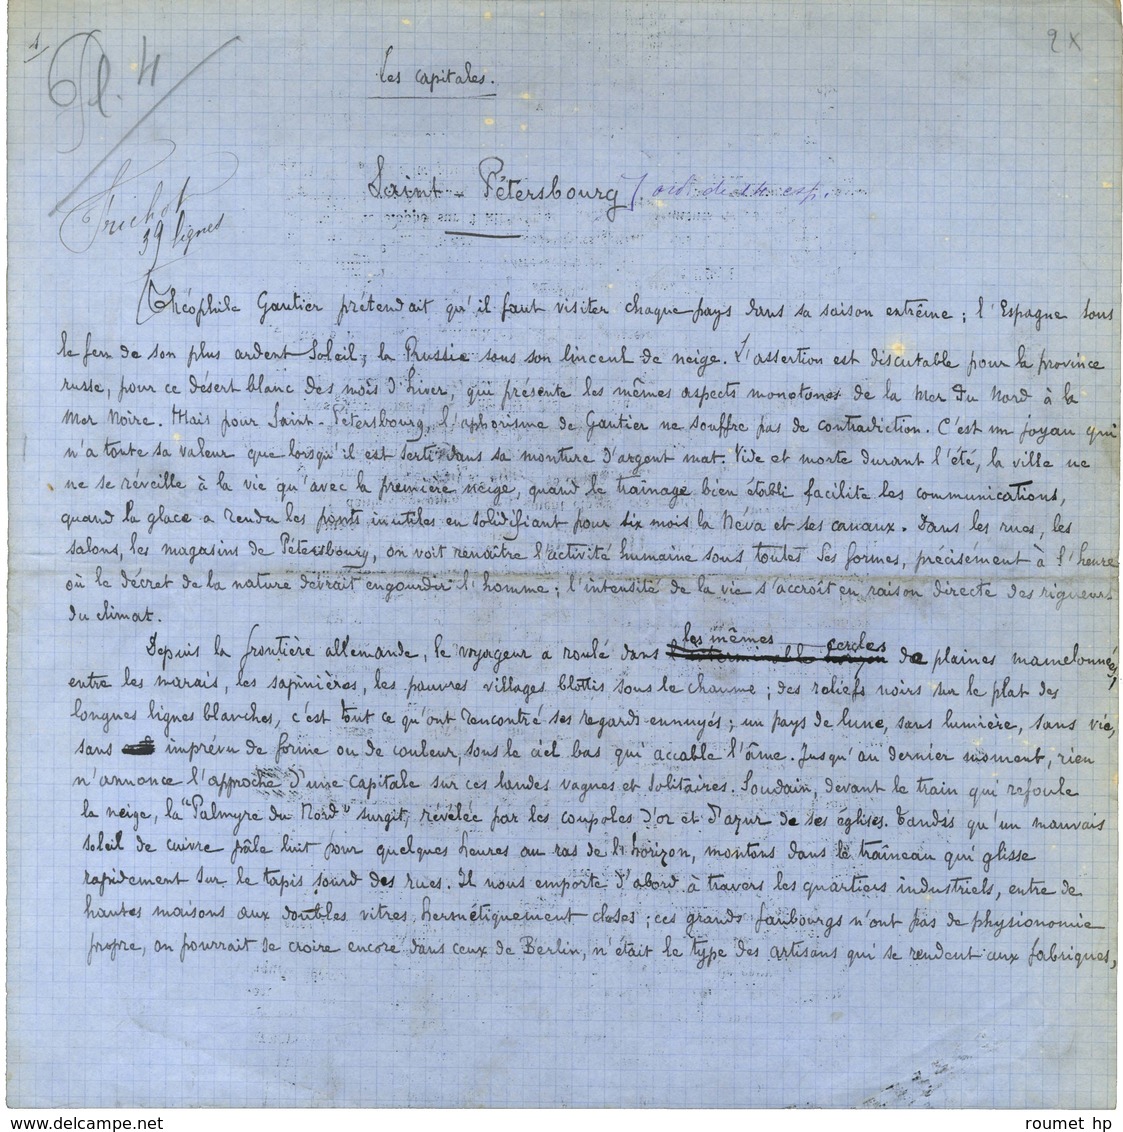 1
Pl. 4
2 x
Les capitales.
Saint-Pétersbourg
Trichot
39 lignes
Théophile Gautier prétendait qu'il faut visiter chaque pays dans sa saison extrême ; l'Espagne sous
le feu de son plus ardent Soleil, la Russie sous son linceul de neige. L'assertion est discutable pour la province
russe, pour ce désert blanc des mois d'hiver, qui présente les mêmes aspects monotones de la Mer du Nord à la
Mer Noire. Mais pour Saint-Pétersbourg, l'aphorisme de Gautier ne souffre pas de contradiction. C'est un joyau qui
n'a toute sa valeur que lorsqu'il est serti dans sa monture d'argent mat. Vide et morte durant l'été, la ville ne
ne se réveille à la vie qu'avec la première neige, quand le traînage bien établi facilite les communications,
quand la glace a rendu les ponts inutiles en solidifiant pour six mois la Néva et ses canaux. Dans les rues, les
salons, les magasins de Pétersbourg, on voit renaître l'activité humaine sous toutes ses formes, précisément à l'heure
où le décret de la nature devrait engourdir l'homme ; l'intensité de la vie s'accroît en raison directe des rigueurs
du climat.
les mêmes cercles
Depuis la frontière allemande, le voyageur a roulé dans de plaines mamelonnées,
entre les marais, les sapinières, les pauvres villages blottis sous le chaume ; des reliefs noirs sur le plat des
longues lignes blanches, c'est tout ce qu'ont rencontré ses regards ennuyés ; un pays de lune, sans lumière, sans vie,
sans imprévu de forme ou de couleur, sous le ciel bas qui accable l'âme. Jusqu'au dernier moment, rien
n'annonce l'approche d'une capitale sur ces landes vagues et solitaires. Soudain, devant le train qui refoule
la neige, la "Palmyre du Nord" surgit, révélée par les coupoles d'or et d'azur de ses églises. Tandis qu'un mauvais
soleil de cuivre pâle luit pour quelques heures au ras de l'horizon, montons dans le traîneau qui glisse
rapidement sur le tapis sourd des rues. Il nous emporte d'abord à travers les quartiers industriels, entre de
hautes maisons aux doubles vitres hermétiquement closes ; ces grands faubourgs n'ont pas de physionomie
propre, on pourrait se croire encore dans ceux de Berlin, n'était le type des artisans qui se rendent aux fabriques,
www.delcampe.net
roumet hp